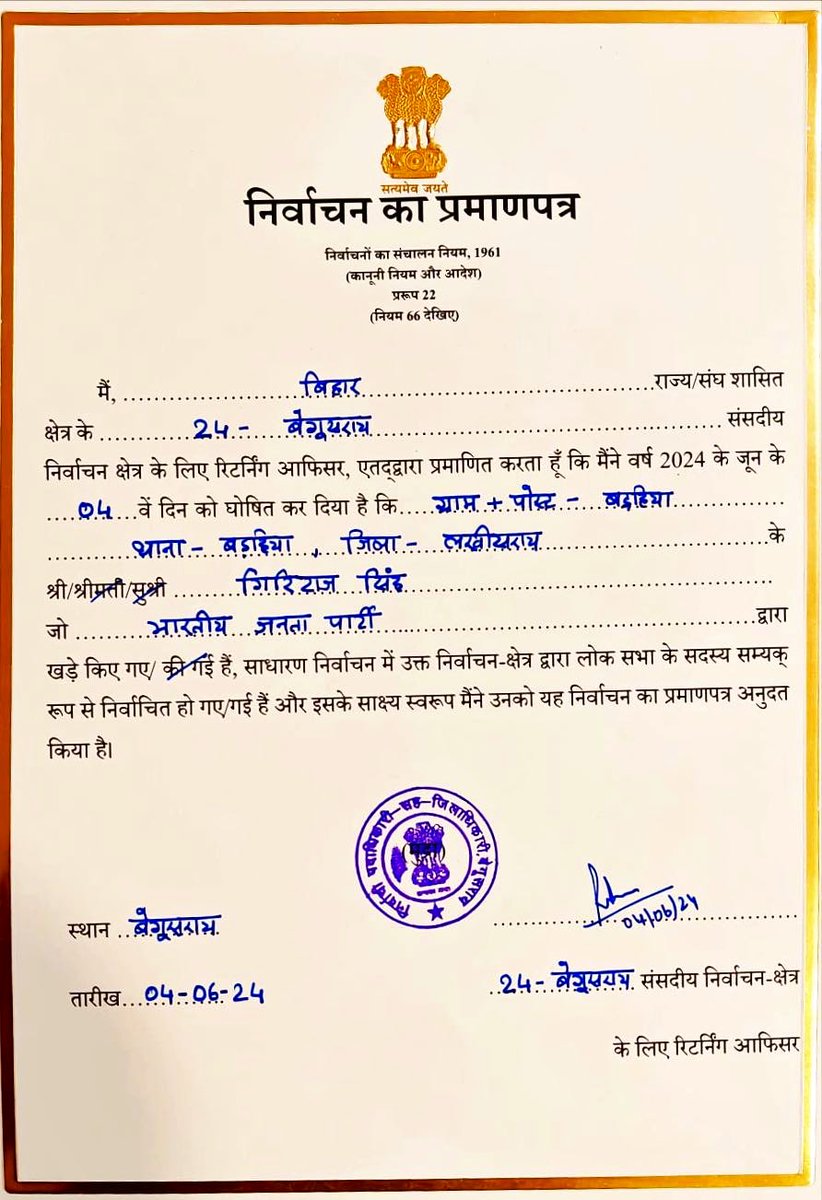 सत्यमेव जयते
निर्वाचन का प्रमाणपत्र
निर्वाचनों का संचालन नियम, 1961
(कानूनी नियम और आदेश)
प्ररूप 22
(नियम 66 देखिए)
मैं, बिहार राज्य/संघ शासित
क्षेत्र के 24- बेगूसराय संसदीय
निर्वाचन क्षेत्र के लिए रिटर्निंग आफिसर, एतद्द्वारा प्रमाणित करता हूँ कि मैंने वर्ष 2024 के जून के
04 वें दिन को घोषित कर दिया है कि ग्राम + पोस्ट - बड़हिया
थाना - बड़हिया , जिला - लखीसराय के
श्री/श्रीमती/सुश्री गिरिराज सिंह
जो भारतीय जनता पार्टी द्वारा
खड़े किए गए/ की गई हैं, साधारण निर्वाचन में उक्त निर्वाचन-क्षेत्र द्वारा लोक सभा के सदस्य सम्यक्
रूप से निर्वाचित हो गए/गई हैं और इसके साक्ष्य स्वरूप मैंने उनको यह निर्वाचन का प्रमाणपत्र अनुदत
किया है।
निर्वाची पदाधिकारी-सह-जिलाधिकारी, बेगूसराय
(मुद्रा)
04/06/24
स्थान बेगूसराय
तारीख 04-06-24
24- बेगूसराय संसदीय निर्वाचन-क्षेत्र
के लिए रिटर्निंग आफिसर